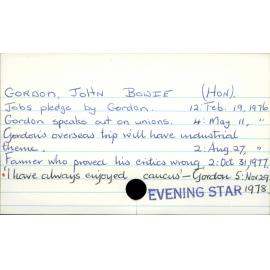 GORDON, JOHN BOWIE (HON).
Jobs pledge by Gordon. 12: Feb. 19, 1976.
Gordon speaks out on unions. 4: May 11, "
Gordon's overseas trip will have industrial
theme. 2: Aug. 27, "
Farmer who proved his critics wrong 2: Oct 31, 1977.
'I have always enjoyed caucus' – Gordon 5: Nov 29
EVENING STAR 1978.